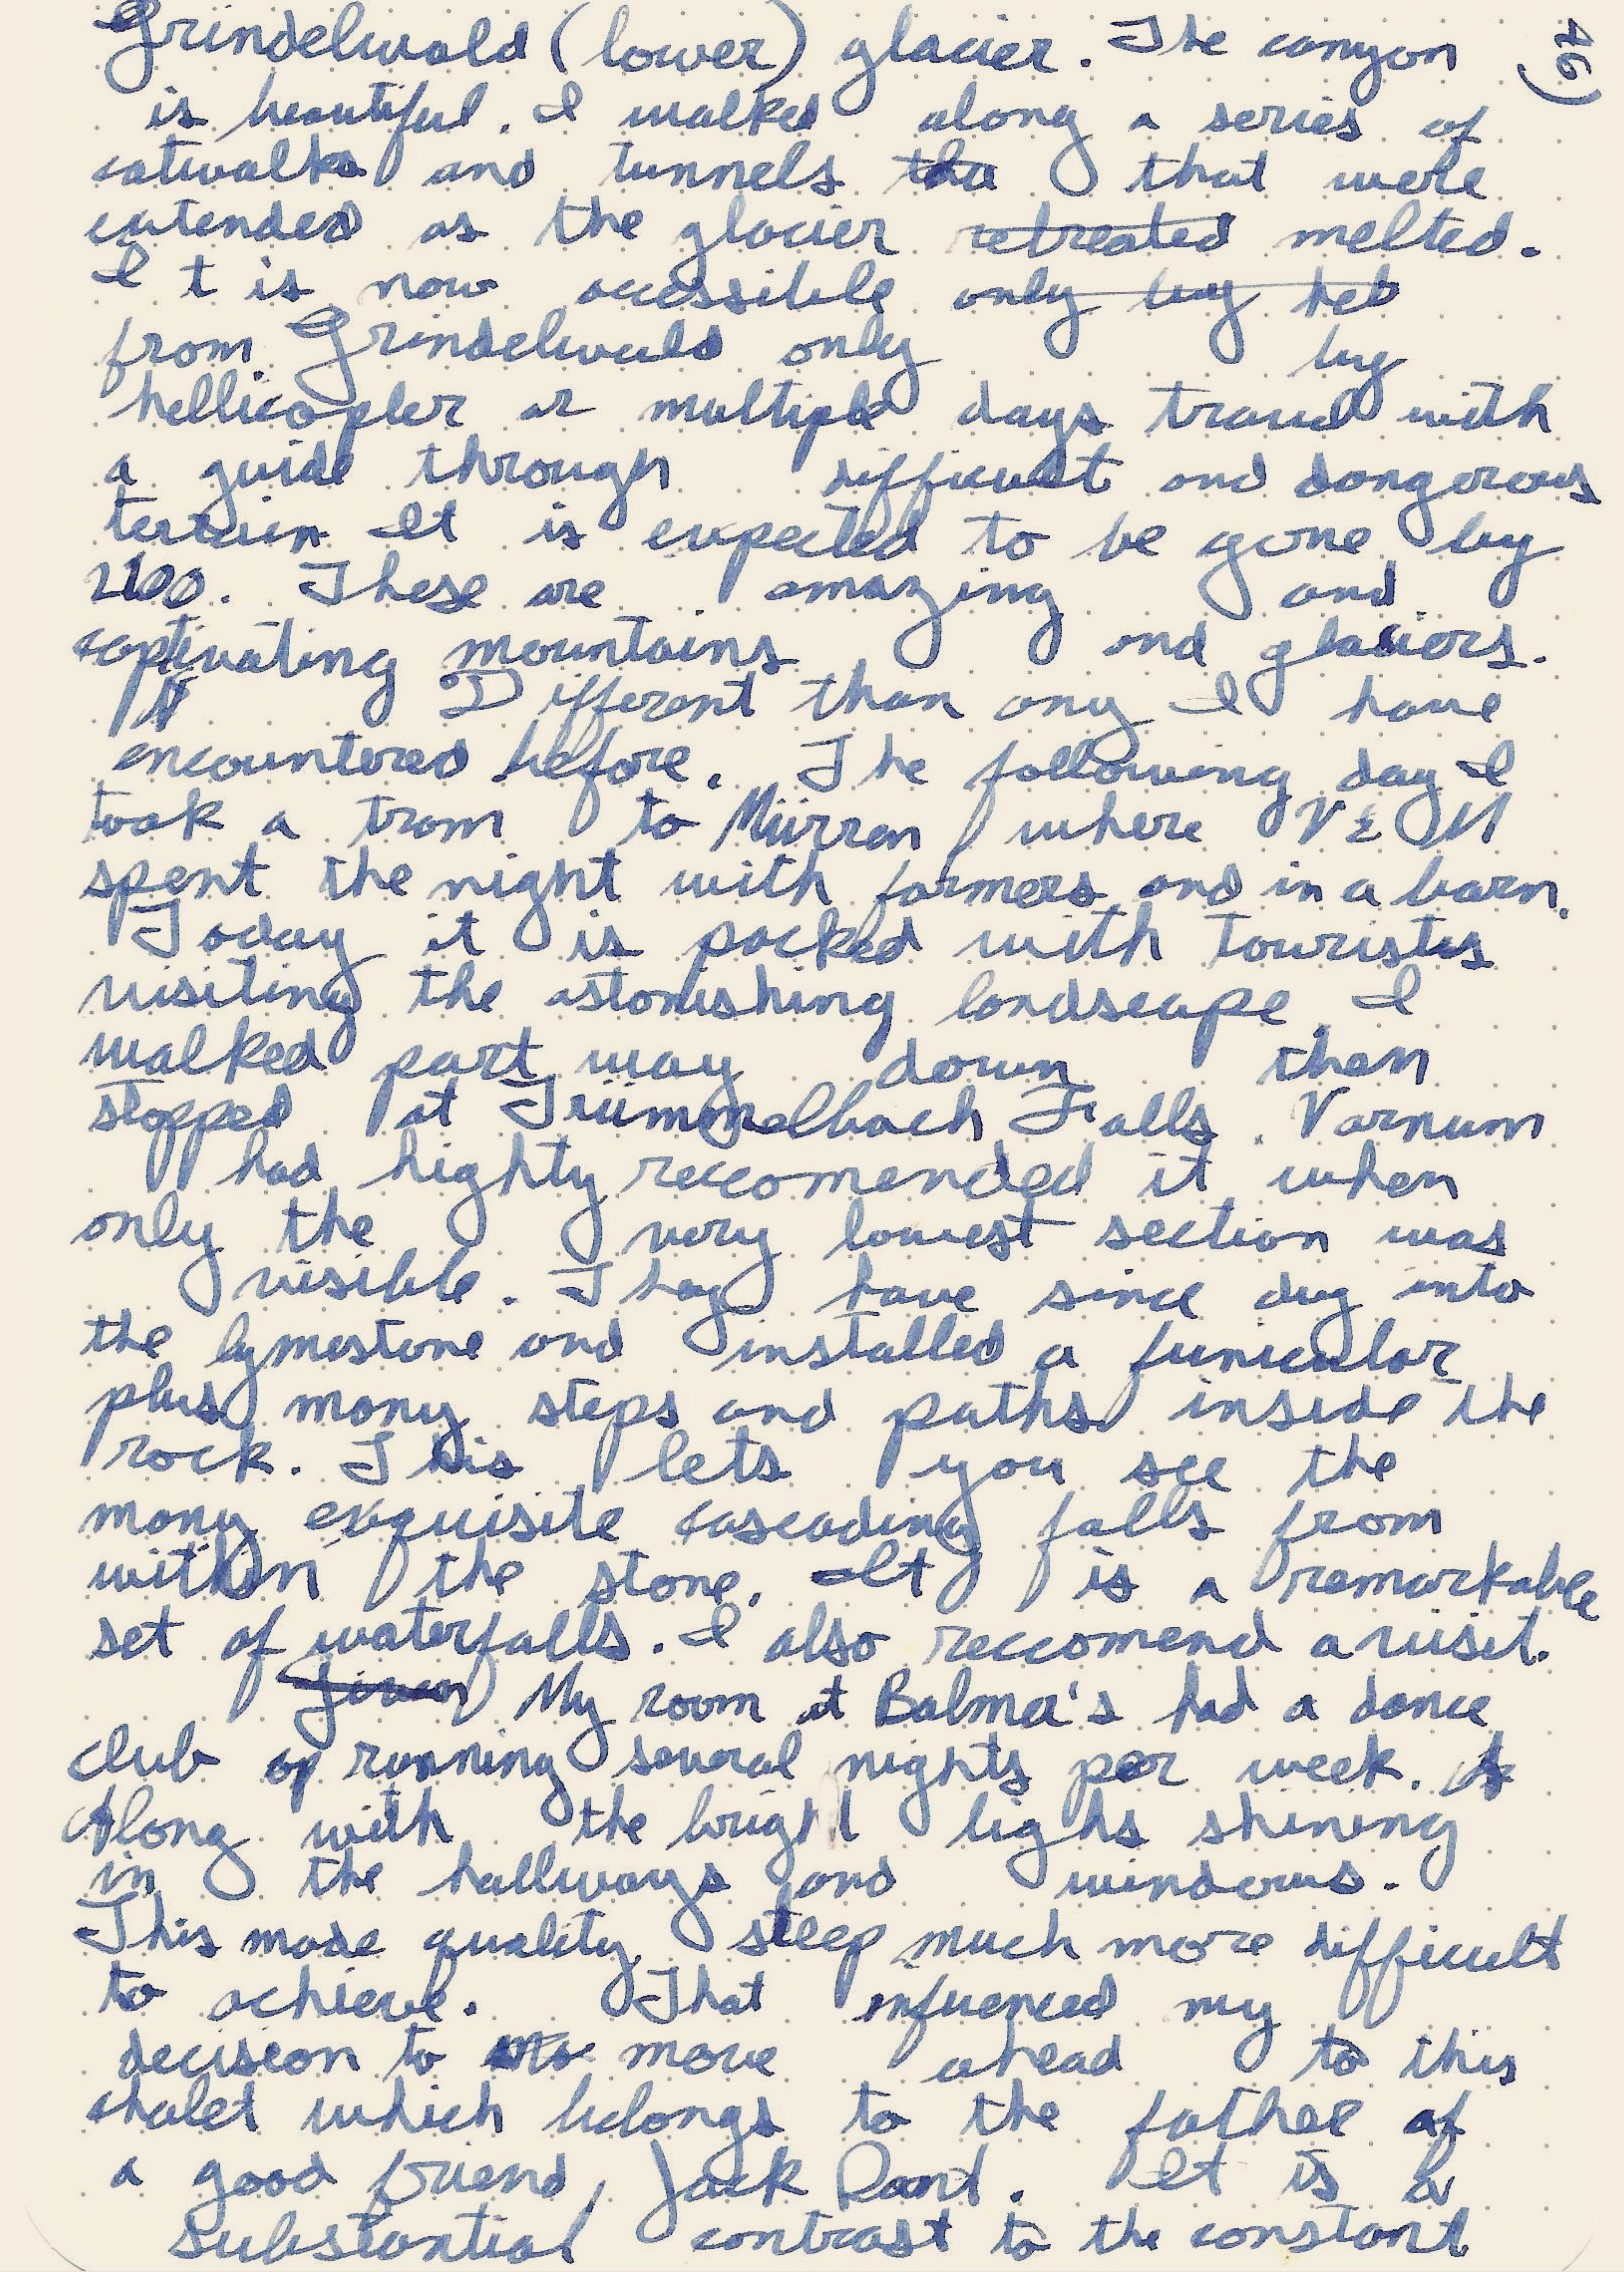 46)
Grindelwald (lower) glacier. The canyon
is beautiful. I walked along a series of
catwalks and tunnels that were
extended as the glacier retreated melted.
It is now accessible only by hel
from Grindelwald only by
hellicopter or multiple days travel with
a guide through difficult and dangerous
terrain It is expected to be gone by
2100. These are amazing and
captivating mountains and glaciers.
Different than any I have
encountered before. The following day I
took a tram to Mürren where V & M
spent the night with farmers and in a barn.
Today it is packed with tourists
visiting the astonishing landscape. I
walked part way down then
stopped at Trümmelbach Falls. Varnum
had highty reccomended it when
only the very lowest section was
visible. They have since dug into
the lymestone and installed a funicular
plus many steps and paths inside the
rock. This lets you see the
many exquisite cascading falls from
within the stone. It is a remarkable
set of waterfalls. I also reccomend a visit.
My room at Balmer's had a dance
club running several nights per week.
Along with the bright lighs shining
in the hallways and windows.
This made quality sleep much more difficult
to achieve. That infuenced my
decision to move ahead to this
chalet which belongs to the father of
a good friend, Jack Rand. It is a
substantial contrast to the constant